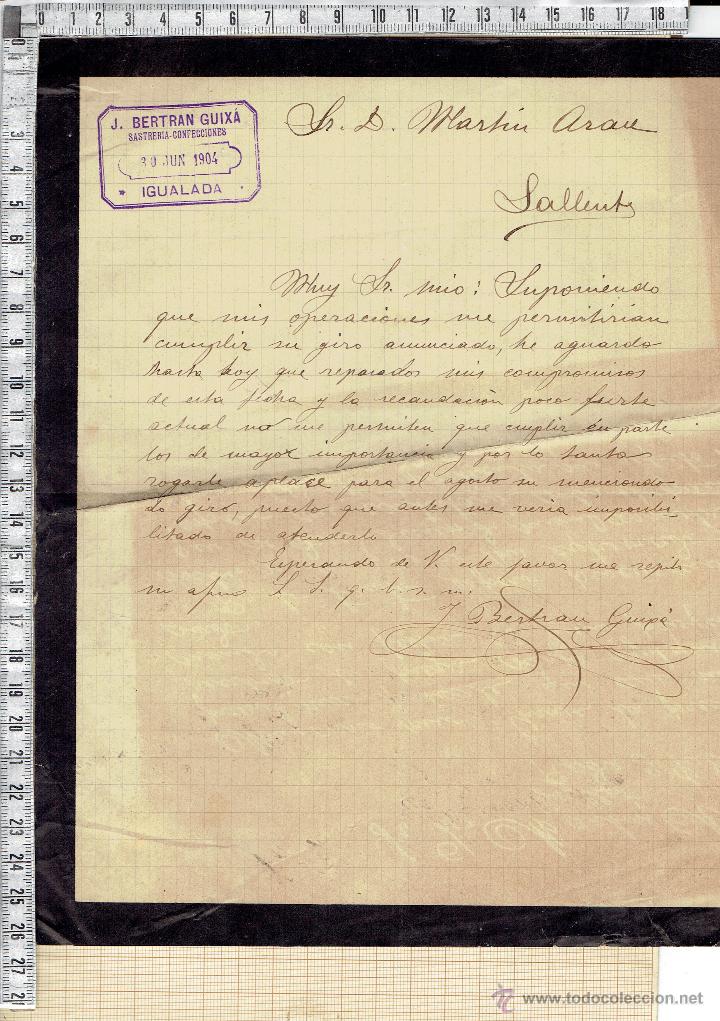 J. BERTRAN GUIXÁ
SASTRERIA-CONFECCIONES
30 JUN 1904
IGUALADA
Sr. D. Martín Arau
Sallent
Muy Sr. mio: Suponiendo
que mis operaciones me permitirian
cumplir su giro anunciado, he aguardado
hasta hoy que reparados mis compromisos
de esta fecha y la recaudación poco fuerte
actual no me permiten que cumplir en parte
los de mayor importancia y por lo tanto
rogarle aplace para el agosto su menciona-
do giro, puesto que antes me veria imposibi-
litado de atenderlo
Esperando de V. este favor me repito
su afmo S. S. q. b. s. m.
J. Bertran Guixá
www.todocoleccion.net